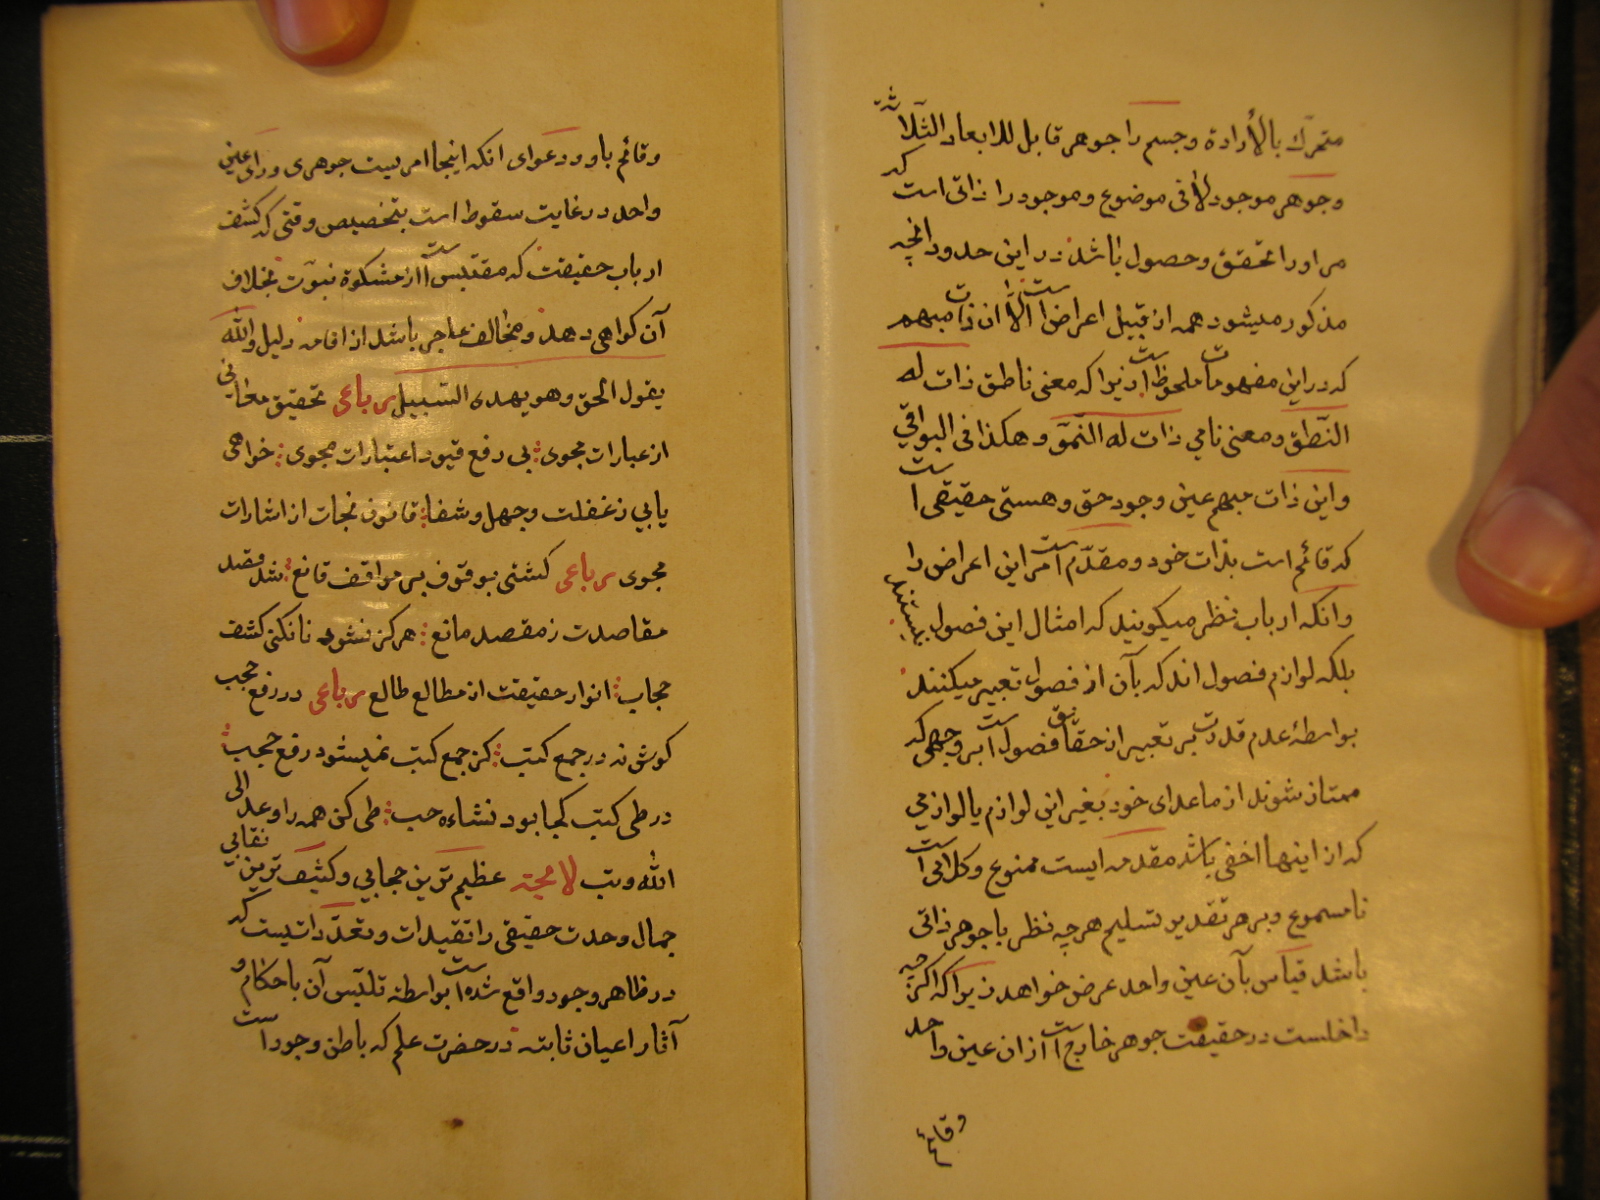 متحرّك بالأرادة وجسم را جوهر قابل للابعاد الثّلاثة
وجوهر موجود لا فى موضوع وموجود را ذاتى است كه
مر او را تحقق وحصول باشد در اين حدود انچه
مذكور ميشود همه از قبيل اعراض است الّا ان ذات مبهم
كه در اين مفهومات ملحوظ است زيرا كه معنى ناطق ذات له
النّطق ومعنى نامي ذات له النّموّ وهكذا فى البواقي
واين ذات مبهم عين وجود حق وهستى حقيقى است
كه قائم است بذات خود ومقدّم است مر اين اعراض را
وانكه ارباب نظر ميكويند كه امثال اين فصول نيستند
بلكه لوازم فصول اند كه بآن از فصول تعبير ميكنند
بواسطهٔ عدم قدرت بر تعبير از حقايق فصول است بر وجهى كه
ممتاز شوند از ماعداى خود بغير اين لوازم يا لوازمي
كه از اينها اخفى باشد مقدمه ايست ممنوع وكلامى است
نامسموع وبر هر تقدير تسليم هرچه نظر با جوهر ذاتى
باشد قياس بآن عين واحد عرض خواهد زيرا كه اكرچه
داخلست در حقيقت جوهر خارج است از ان عين واحد
وقائم
وقائم باو ودعواى انكه اينجا امريست جوهرى وراى عين
واحد در غايت سقوط است بتخصيص وقتى كه كشف
ارباب حقيقت كه مقتبس است از مشكوة نبوّت بخلاف
آن كواهى دهد ومخالف عاجز باشد از اقامه دليل والله
يقول الحق وهو يهدى السّبيل رباعى تحقيق معانى
از عبارات مجوى بى رفع قيود اعتبارات مجوى خواهى
يابي ز غفلت وجهل وشفا قانون نجات از اشارات
مجوى رباعى كشتى بوقوف بر مواقف قانع شد مقصد
مقاصدت ز مقصد مانع هركز نشود تا نكنى كشف
حجاب انوار حقيقت از مطالع طالع رباعى در رفع حجب
كوش نه در جمع كتب كز جمع كتب نميشود رفع حجب
در طى كتب كجا بود نشاءه حب طى كن همه را وعد الى
الله وتب لا محة عظيم ترين حجابي وكثيف ترين نقابي
جمال وحدت حقيقى را تقيدات وتعدّداتيست كه
در ظاهر وجود واقع شده است بواسطه تلبّس آن باحكام و
آثار اعيان ثابته در حضرت علم كه باطن وجود است